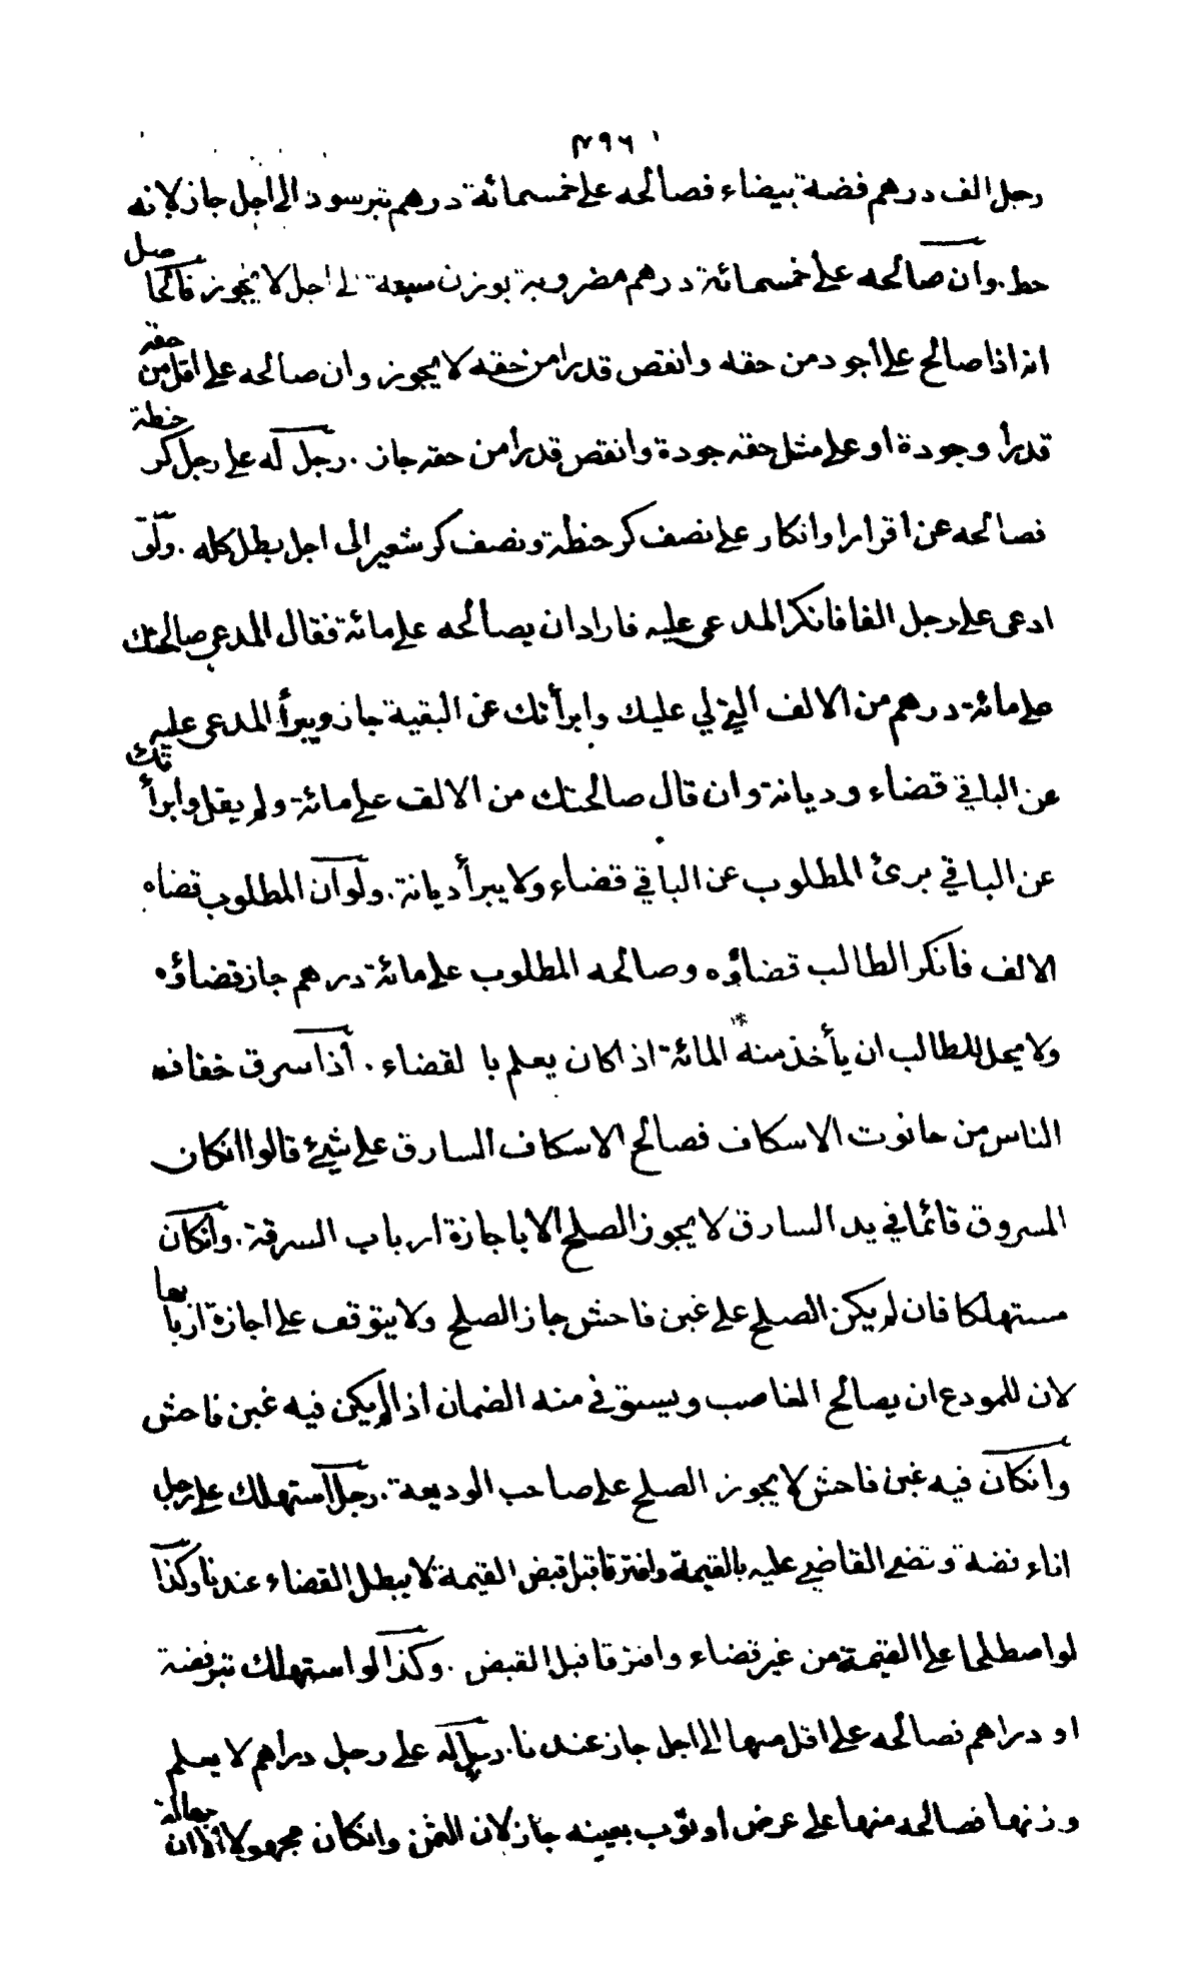 ٤٩٦
رجل الف درهم فضة بيضاء فصالحه على خمسمائة درهم تبر سود الى اجل جاز لانه
حط . وان صالحه على خمسمائة درهم مضروبة بوزن سبعة الى اجل لا يجوز فالحاصل
انه اذا صالح على أجود من حقه وانقص قدرا من حقه لا يجوز وان صالحه على اقل من حقه
قدرا وجودة او على مثل حقه جودة وانقص قدرا من حقه جاز . رجل له على رجل كر حنطة
فصالحه عن اقرار او انكار على نصف كر حنطة ونصف كر شعير الى اجل بطل كله . ولو
ادعى على رجل الفا فانكر المدعى عليه فاراد ان يصالحه على مائة فقال المدعي صالحتك
على مائة درهم من الالف التي لي عليك وابرأتك عن البقية جاز ويبرأ المدعى عليه
عن الباقي قضاء وديانة وان قال صالحتك من الالف على مائة ولم يقل وابرأتك
عن الباقي برئ المطلوب عن الباقي قضاء ولا يبرأ ديانة . ولو ان المطلوب قضاه
الالف فانكر الطالب قضاؤه وصالحه المطلوب على مائة درهم جاز قضاؤه
ولا يحل للطالب ان يأخذ منه المائة اذا كان يعلم با لقضاء . اذا سرق خفاف
الناس من حانوت الاسكاف فصالح الاسكاف السارق على شيئ قالوا انكان
المسروق قائما في يد السارق لا يجوز الصلح الا باجازة ارباب السرقة . وانكان
مستهلكا فان لم يكن الصلح على غبن فاحش جاز الصلح ولا يتوقف على اجازة اربابها
لان للمودع ان يصالح الغاصب ويستوفي منه الضمان اذا لم يكن فيه غبن فاحش
وانكان فيه غبن فاحش لا يجوز الصلح على صاحب الوديعة . رجل استهلك على رجل
اناء فضة وقضى القاضي عليه بالقيمة وافترقا قبل قبض القيمة لا يبطل القضاء عندنا وكذا
لو اصطلحا على القيمة من غير قضاء وافترقا قبل القبض . وكذا لو استهلك تبر فضة
او دراهم فصالحه على اقل منها الى اجل جاز عندنا . رجل له على رجل دراهم لا يعلم
وزنها فصالحه منها على عرض او ثوب بعينه جاز لان الثمن وانكان مجهولا الا ان جهالة